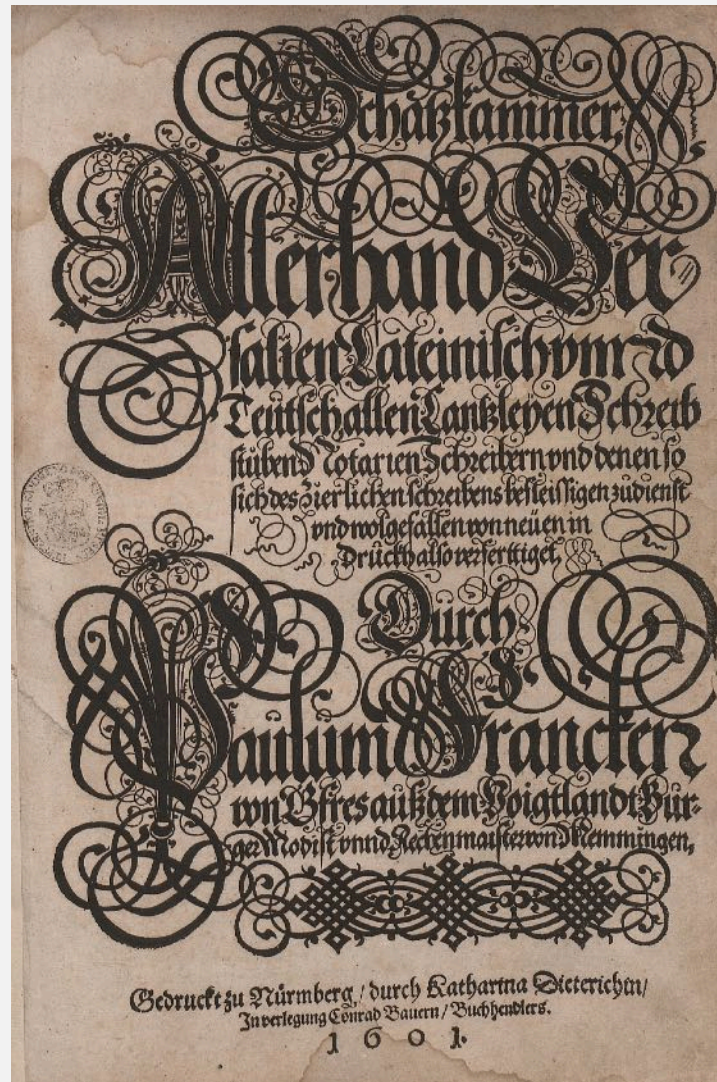 Schatzkammer,
Allerhand Ver
salien Lateinisch vnnd
Teütsch allen Cantzleyen Schreib
stüben Notarien Schreibern vnd denen so
sich des zierlichen schreibens befleissigen zü dienst
vnd wolgefallen von neüen in
Drückh also verferttiget,
Dürch
Paulum Francken
von Gfres auß dem Voigtlandt Bür-
ger Modist vnnd Rechenmaister von Memmingen,
Gedruckt zu Nürmberg / durch Katharina Dieterichin /
In verlegung Conrad Bauern / Buchhendlers.
1601.